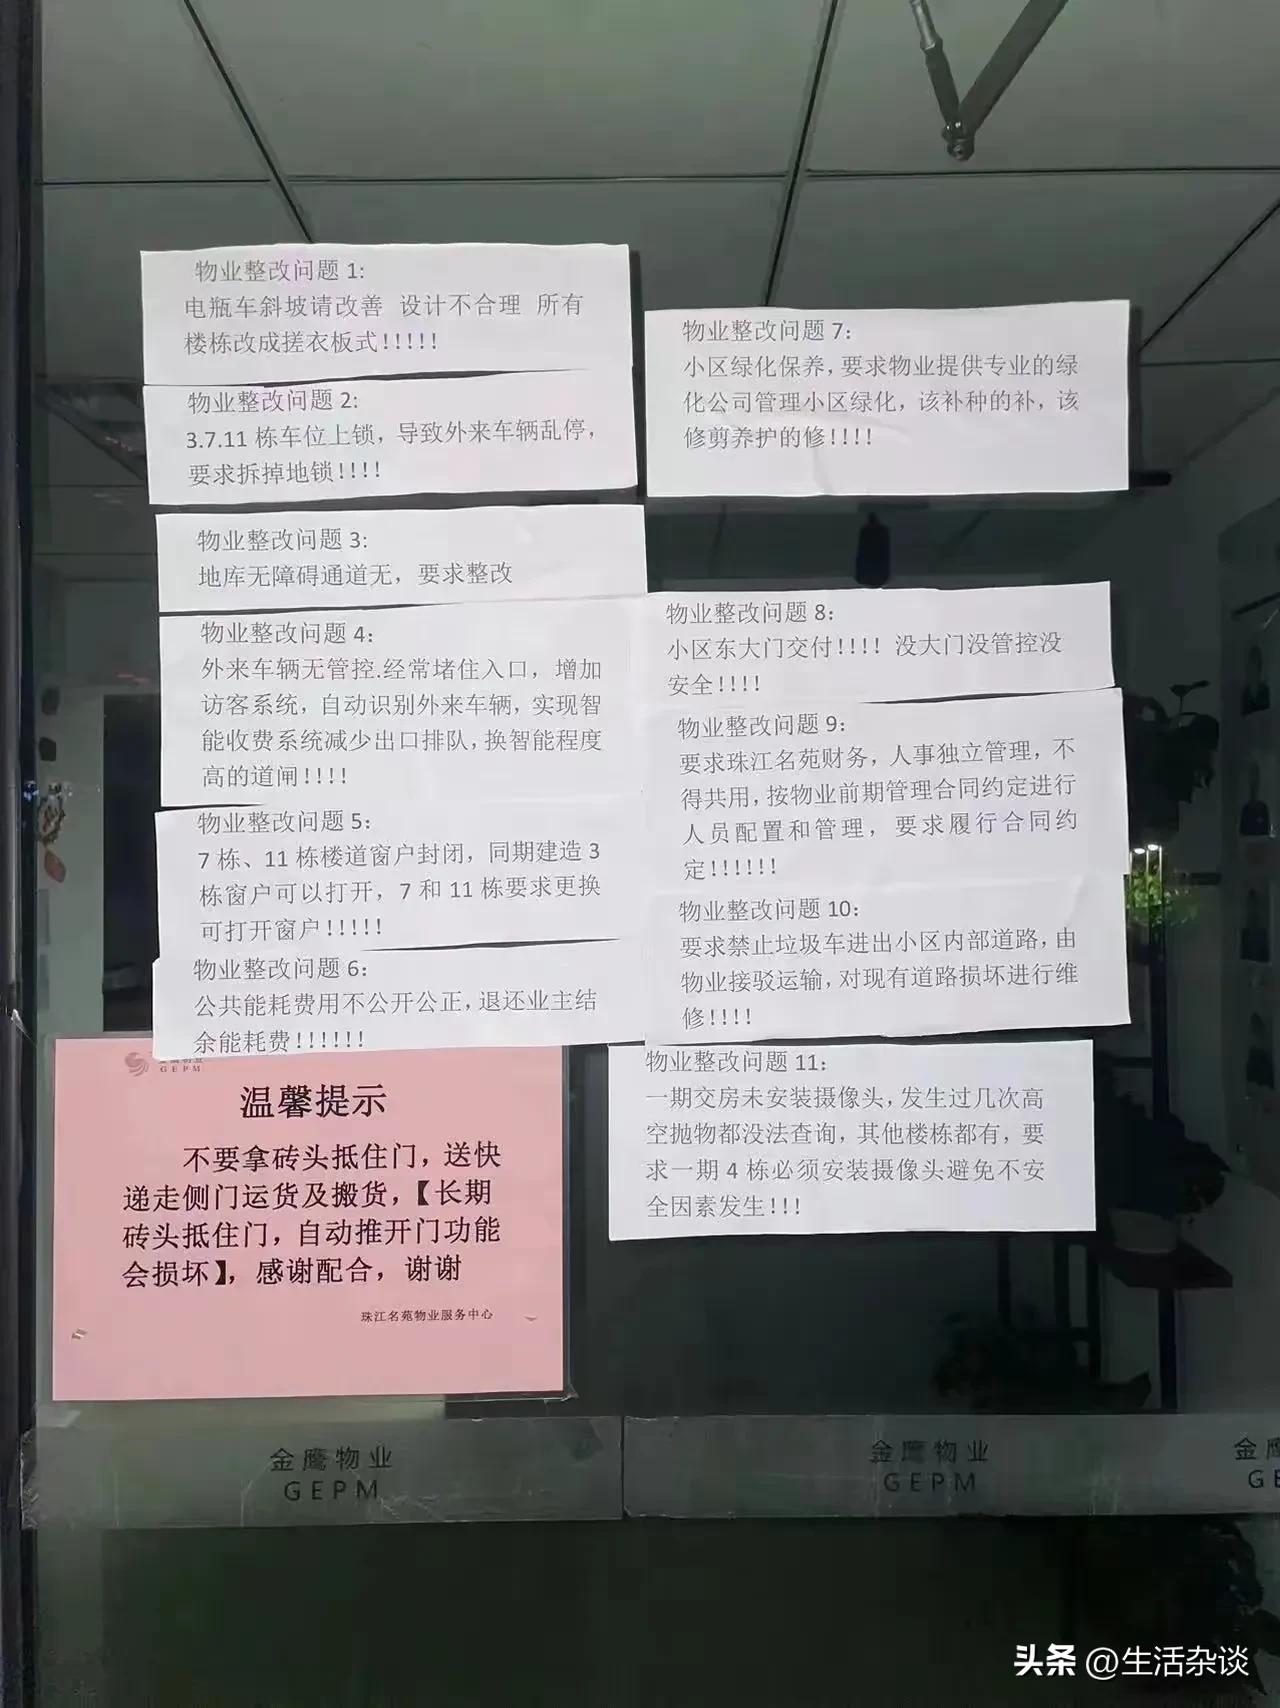 物业整改问题 1:
电瓶车斜坡请改善 设计不合理 所有
楼栋改成搓衣板式!!!!!
物业整改问题 2:
3.7.11 栋车位上锁，导致外来车辆乱停，
要求拆掉地锁!!!!
物业整改问题 3:
地库无障碍通道无，要求整改
物业整改问题 4：
外来车辆无管控.经常堵住入口，增加
访客系统，自动识别外来车辆，实现智
能收费系统减少出口排队，换智能程度
高的道闸!!!!
物业整改问题 5：
7 栋、11 栋楼道窗户封闭，同期建造 3
栋窗户可以打开，7 和 11 栋要求更换
可打开窗户!!!!!
物业整改问题 6：
公共能耗费用不公开公正，退还业主结
余能耗费!!!!!!
物业整改问题 7：
小区绿化保养，要求物业提供专业的绿
化公司管理小区绿化，该补种的补，该
修剪养护的修!!!!
物业整改问题 8：
小区东大门交付!!!! 没大门没管控没
安全!!!!
物业整改问题 9：
要求珠江名苑财务，人事独立管理，不
得共用，按物业前期管理合同约定进行
人员配置和管理，要求履行合同约
定!!!!!!
物业整改问题 10：
要求禁止垃圾车进出小区内部道路，由
物业接驳运输，对现有道路损坏进行维
修!!!!
物业整改问题 11：
一期交房未安装摄像头，发生过几次高
空抛物都没法查询，其他楼栋都有，要
求一期 4 栋必须安装摄像头避免不安
全因素发生!!!
GEPM
温馨提示
不要拿砖头抵住门，送快
递走侧门运货及搬货，【长期
砖头抵住门，自动推开门功能
会损坏】，感谢配合，谢谢
珠江名苑物业服务中心
金鹰物业
GEPM
金鹰物业
GEPM
头条 @生活杂谈